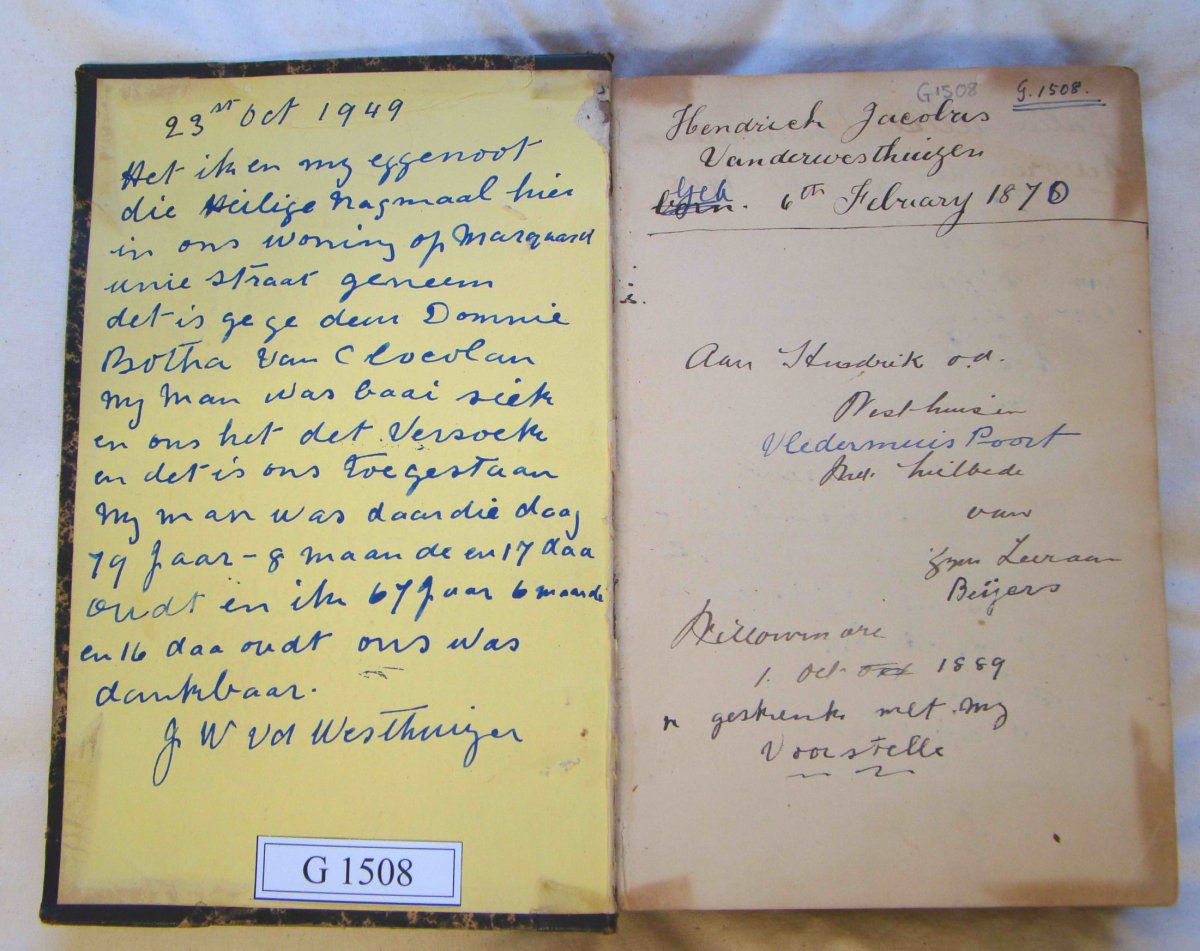 23st Oct 1949
Het ik en my eggenoot
die Heilige Nagmaal hier
in ons woning op Marquard
unie straat geneem
det is ge ge deur Domnie
Botha Van Clocolan
My Man was baai siek
en ons het det Versoek
en det is ons toegestaan
My man was daardie daag
79 Jaar - 8 maande en 17 daa
oudt en ik 67 Jaar 6 maande
en 16 daa oudt ons was
dankbaar.
J W Vd Westhuizen
G 1508
G1508
G. 1508.
Hendrick Jacobus
Vanderwesthuizen
born. Geb 6th February 1870
Aan Hendrik v.d.
Westhuisen
Vledermuis Poort
van
Zyn Leeraar
Beijers
Willowmore
1. Oct Oct 1889
n geskenk met my
Voorstelle